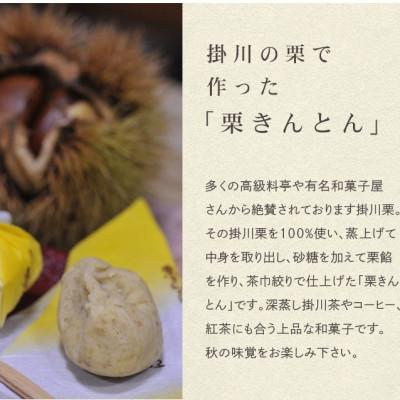 掛川の栗で
作った
「栗きんとん」
多くの高級料亭や有名和菓子屋
さんから絶賛されております掛川栗。
その掛川栗を100%使い、蒸上げて
中身を取り出し、砂糖を加えて栗餡
を作り、茶巾絞りで仕上げた「栗きん
とん」です。深蒸し掛川茶やコーヒー、
紅茶にも合う上品な和菓子です。
秋の味覚をお楽しみ下さい。